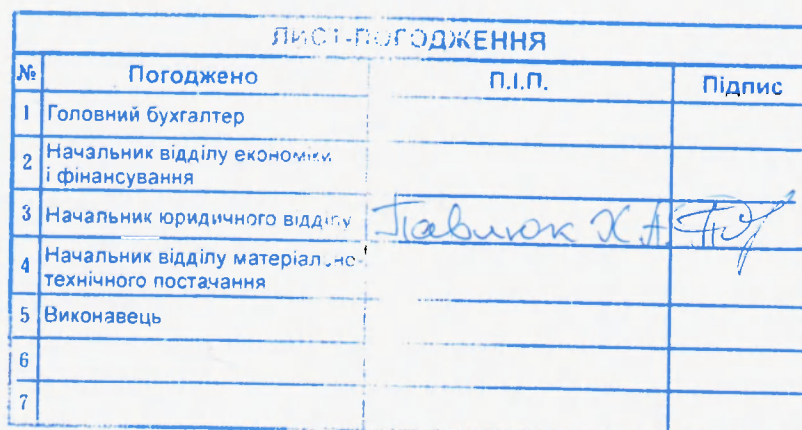 ЛИСТ-ПОГОДЖЕННЯ
№ Погоджено П.І.П. Підпис
1 Головний бухгалтер
2 Начальник відділу економіки
і фінансування
3 Начальник юридичного відділу Павлюк Х.А.
4 Начальник відділу матеріально-
технічного постачання
5 Виконавець
6
7